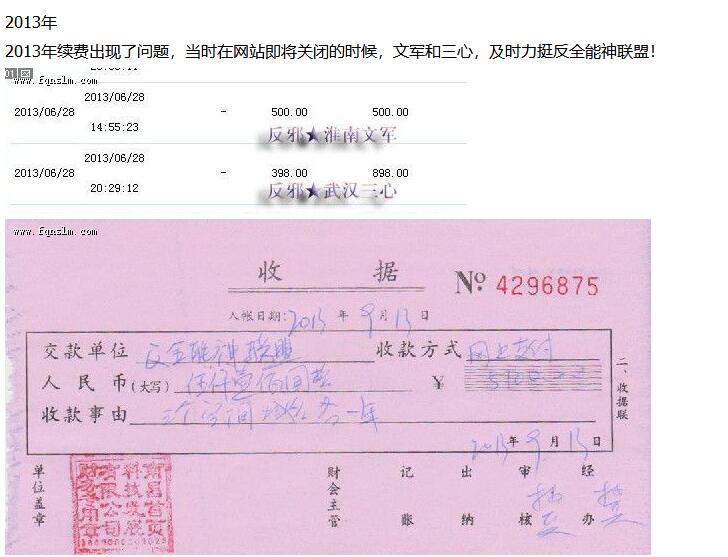 2013年
2013年续费出现了问题，当时在网站即将关闭的时候，文军和三心，及时力挺反全能神联盟！
www.fqnslm.com
2013/06/28 2013/06/28 14:55:23 - 500.00 500.00
反邪★淮南文军
2013/06/28 2013/06/28 20:29:12 - 398.00 898.00
反邪★武汉三心
www.fqnslm.com
收 据 Nº 4296875
入帐日期: 2013 年 9 月 13 日
交款单位 反全能神联盟 收款方式 网上支付
人民币(大写) 伍仟壹佰圆整 ¥
收款事由 三个空间 一年
2013 年 9 月 13 日
二、收据联
单位盖章
南昌首页科技发展有限公司财务专用章
财会主管
记账
出纳
审核
经办